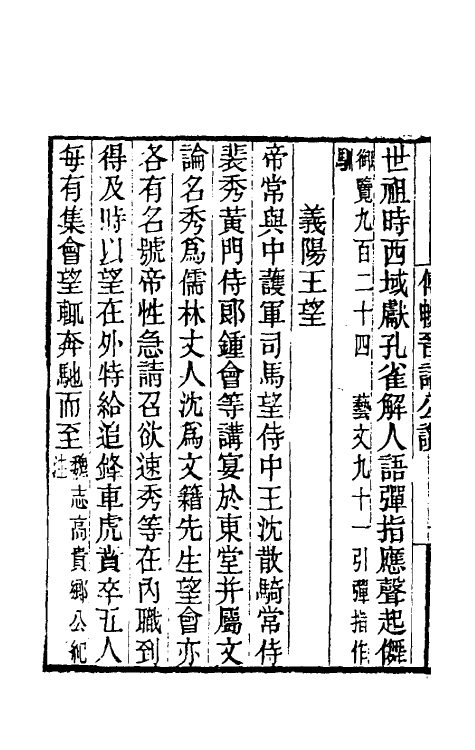 世祖時西域獻孔雀解人語彈指應聲起儛
御覽九百二十四 藝文九十一引彈指作
馴
義陽王望
帝常與中護軍司馬望侍中王沈散騎常侍
裴秀黃門侍郎鍾會等講宴於東堂并屬文
論名秀爲儒林丈人沈爲文籍先生望會亦
各有名號帝性急請召欲速秀等在內職到
得及時以望在外特給追鋒車虎賁卒五人
每有集會望輒奔馳而至
魏志高貴鄉公紀
注